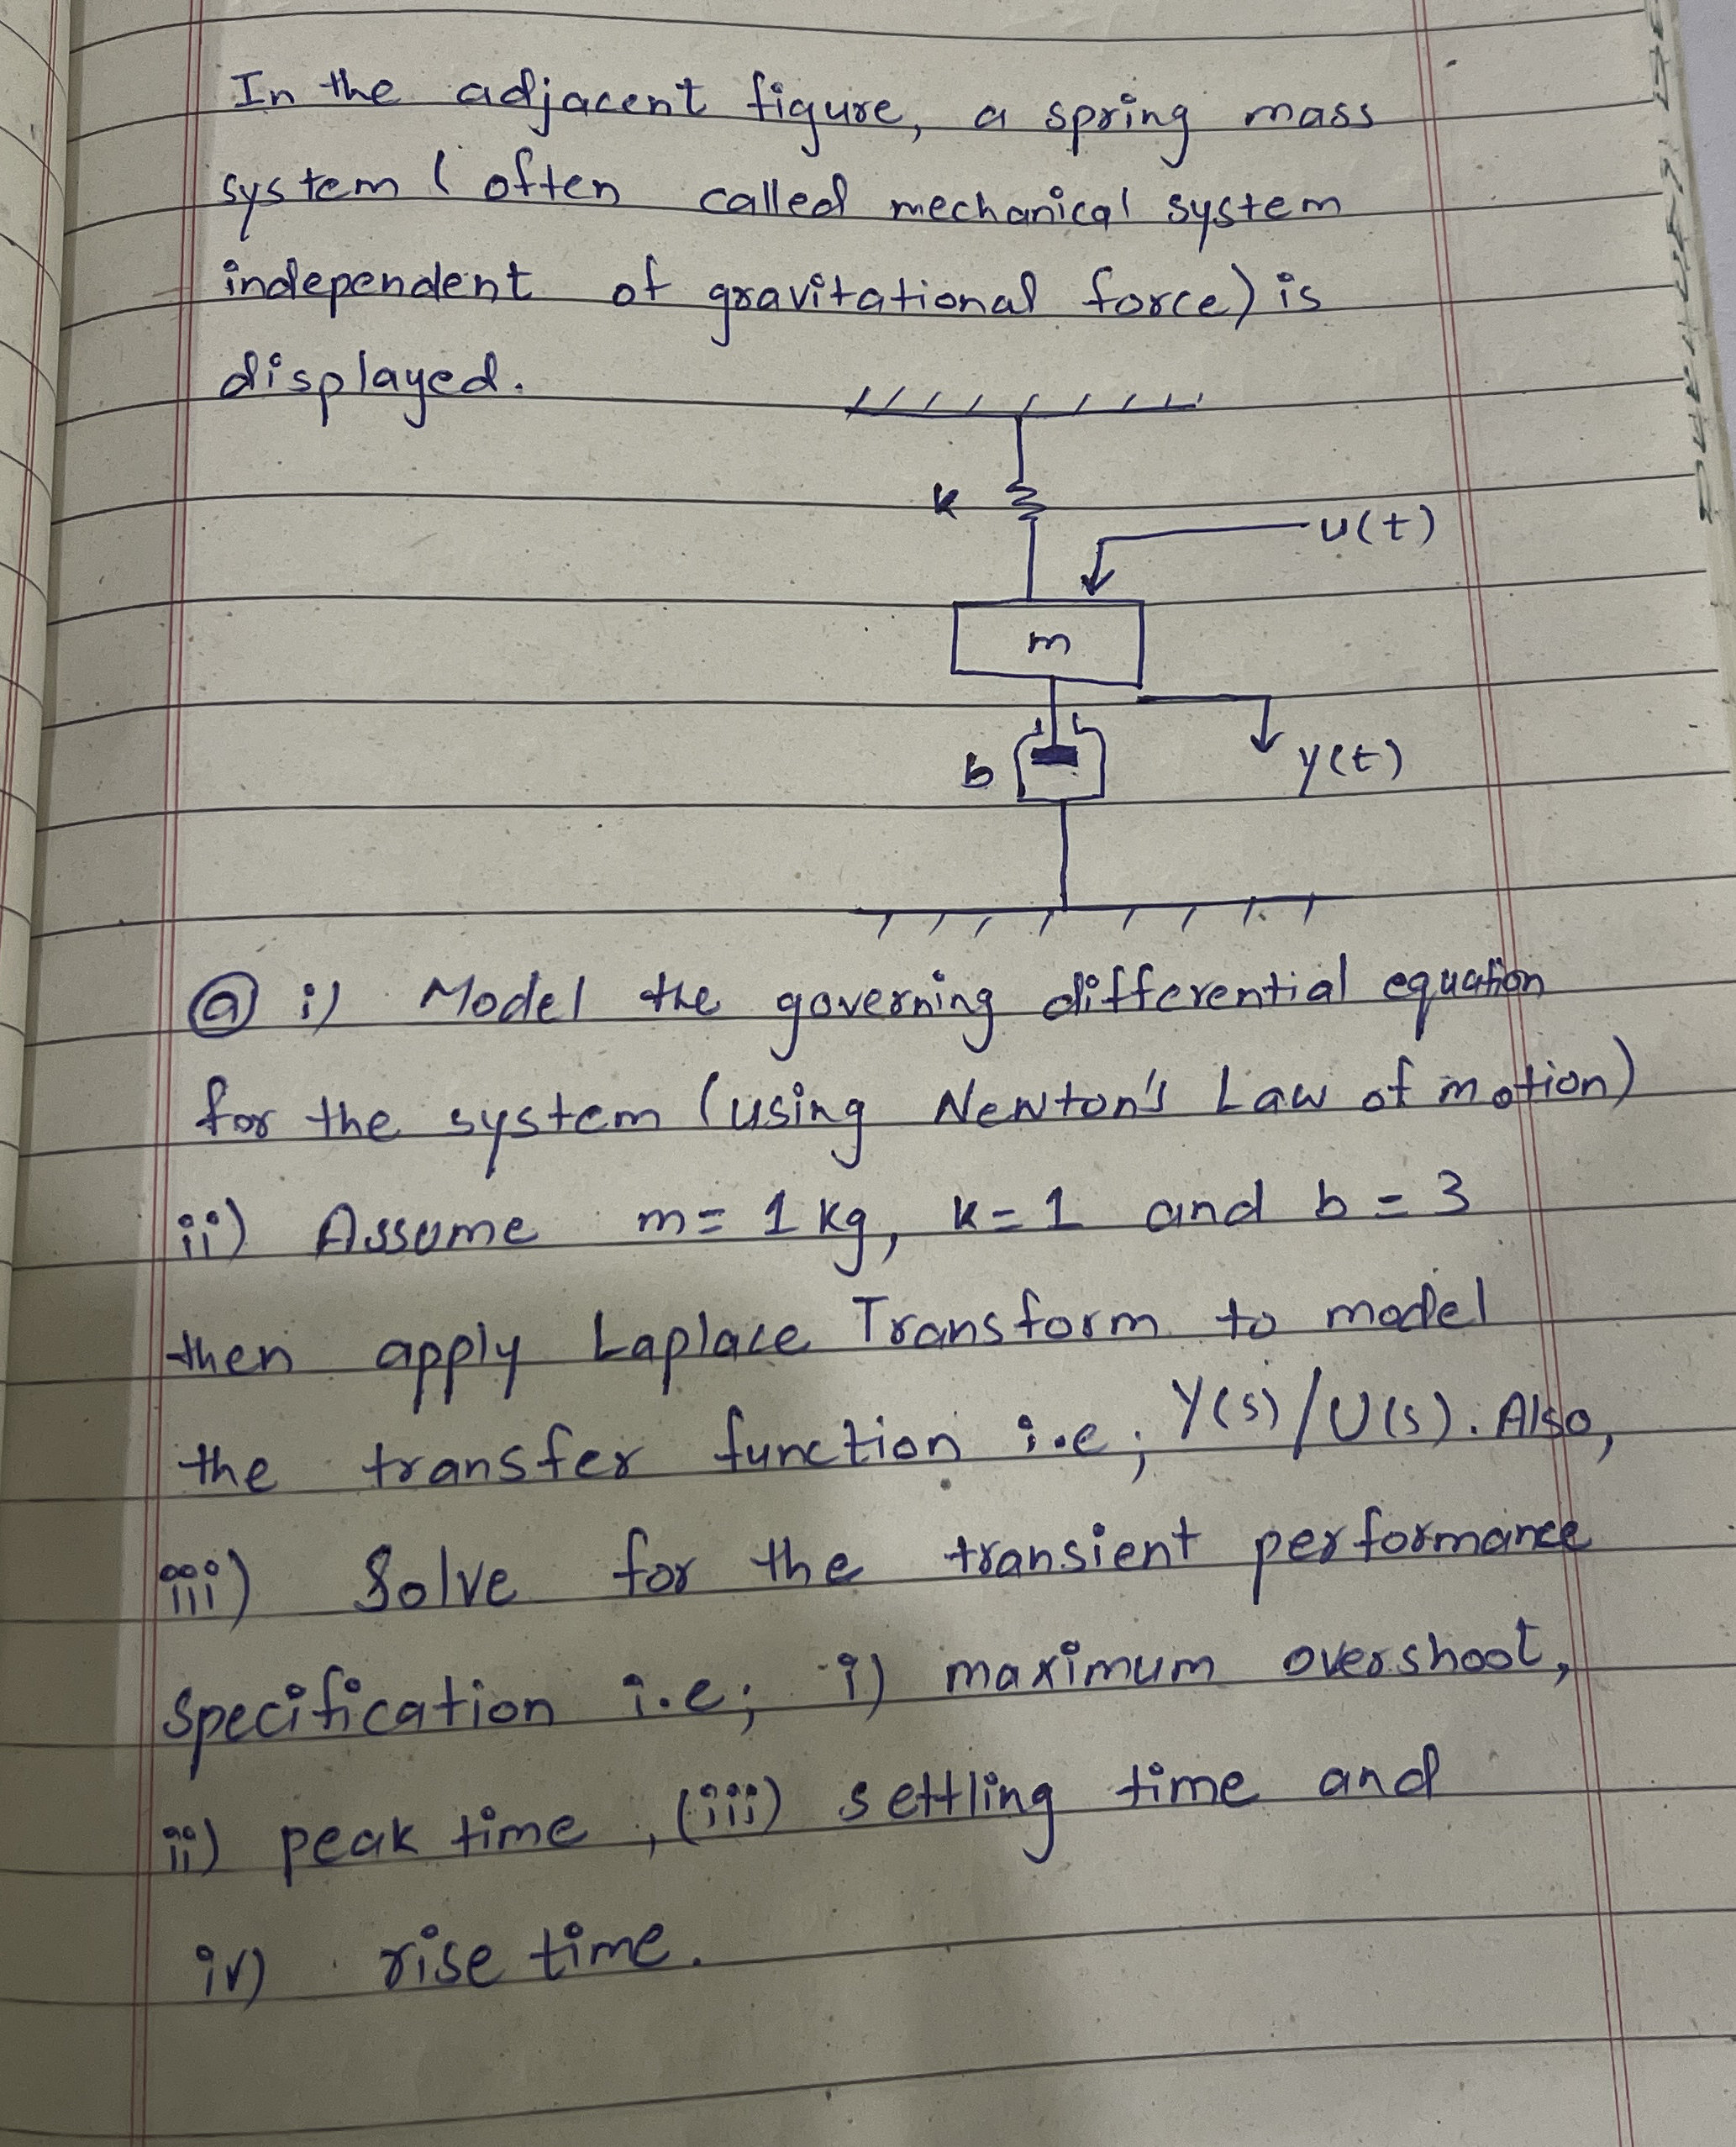 In the adjacent figure, a spring mass
system (often called mechanical system
independent of gravitational force) is
displayed.
K
u(t)
m
b
y(t)
ⓐ i) Model the governing differential equation
for the system (using Newton's Law of motion)
ii) Assume m = 1 kg, K = 1 and b = 3
then apply Laplace Transform to model
the transfer function i.e; Y(s)/U(s). Also,
iii) Solve for the transient performance
specification i.e; i) maximum overshoot,
ii) peak time, (iii) settling time and
iv) rise time.